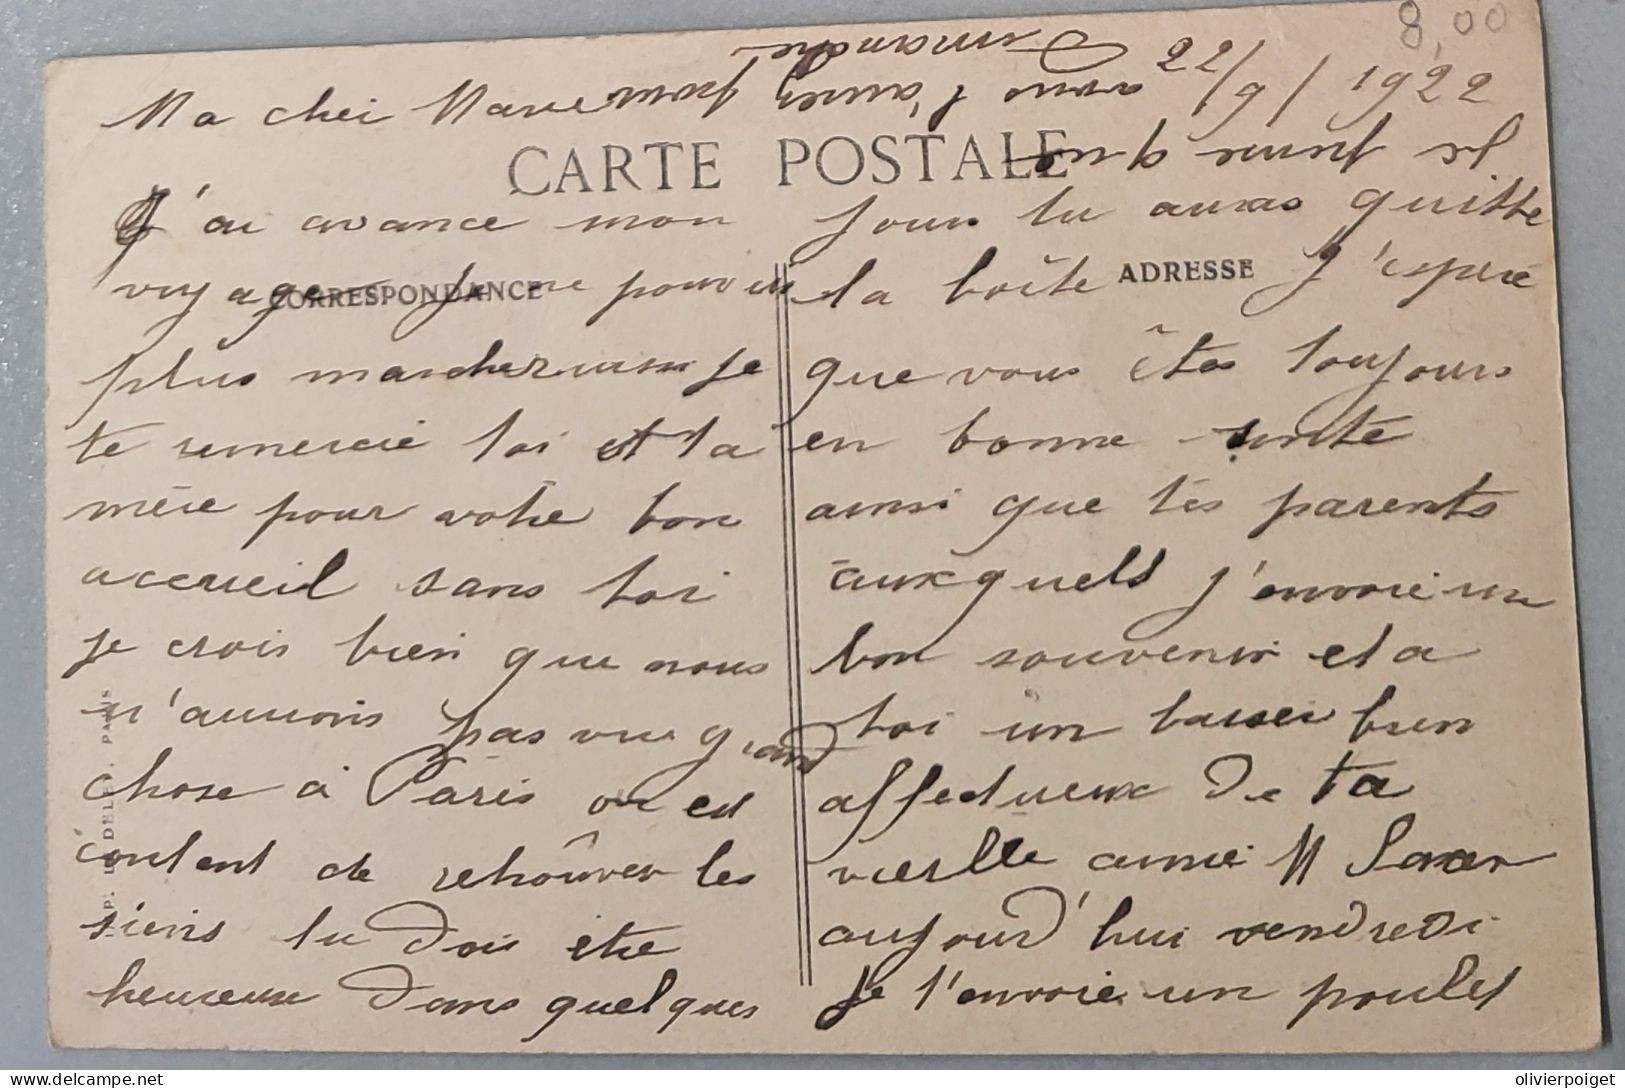 8,00
22/9/1922
Ma cher Marie
CARTE POSTALE
J'ai avance mon
CORRESPONDANCE
voyage je ne pouvais
plus marcher aussi je
te remercie toi et ta
mère pour votre bon
accueil sans toi
je crois bien que nous
n'aurions pas vue grand
chose à Paris on est
content de retrouver les
siens tu dois etre
heureuse dans quelques
jours tu auras quitte
ADRESSE
la boîte j'espere
que vous êtes toujours
en bonne sante
ainsi que tes parents
auxquels j'envoie un
bon souvenir et a
toi un baiser bien
affectueux de ta
vieille amie M
aujourd'hui vendredi
je t'envoie un poulet
je pense que
vous l'aurez pour
Dimanche
IMP. L. DELEY. PARIS
olivierpoiget